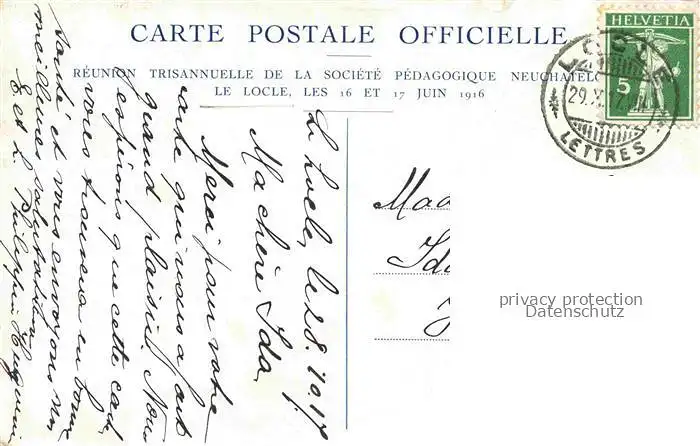 CARTE POSTALE OFFICIELLE
RÉUNION TRISANNUELLE DE LA SOCIÉTÉ PÉDAGOGIQUE NEUCHATELO
LE LOCLE, LES 16 ET 17 JUIN 1916
HELVETIA
5
LOCLE
29.X.17
LETTRES
Le Locle, le 28. 10. 17
Ma chère Ida,
Merci pour votre
carte qui nous a fait
grand plaisir. Nous
espérons que cette carte
vous trouvera en bonne
santé et vous envoyons nos
meilleures salutations
E. et L. Philippin Huguenin
Mad
Ida
privacy protection
Datenschutz